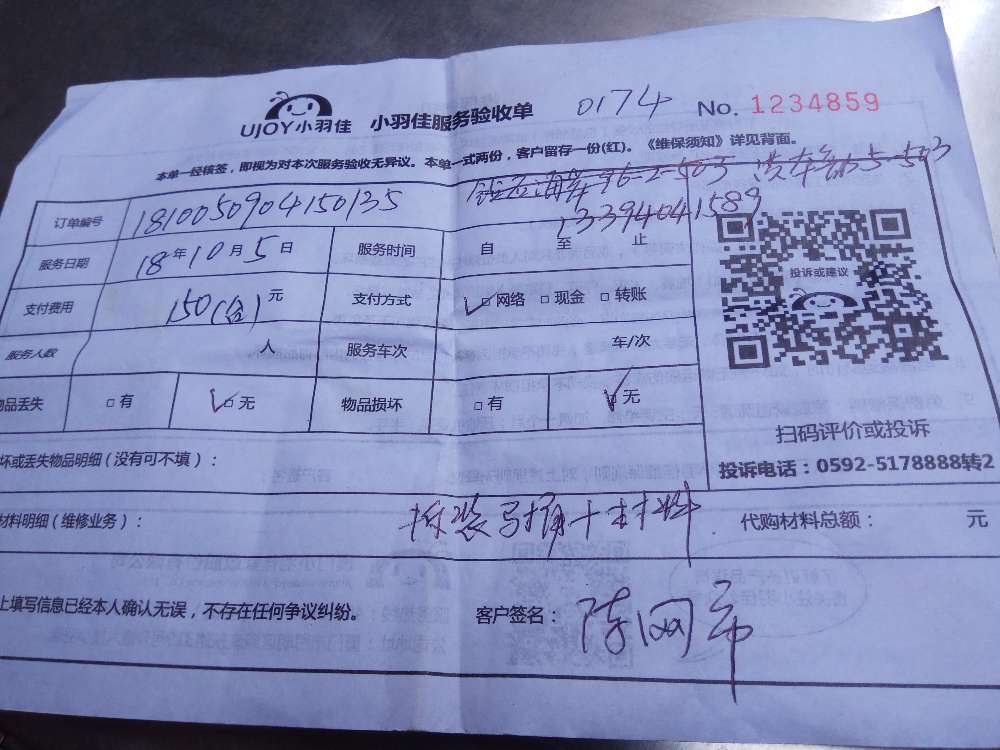 UJOY小羽佳 小羽佳服务验收单 0174 No. 1234859
本单一经核签，即视为对本次服务验收无异议。本单一式两份，客户留存一份(红)。《维保须知》详见背面。
96-2-503
13394041589
订单编号 1810050904150135
服务日期 18年10月5日 服务时间 自 至 止
支付费用 150(含)元 支付方式 ✓□网络 □现金 □转账
服务人数 人 服务车次 车/次
物品丢失 □有 ✓□无 物品损坏 □有 ✓□无
投诉或建议
扫码评价或投诉
投诉电话：0592-5178888转2
坏或丢失物品明细（没有可不填）：
材料明细（维修业务）： 拆装马桶+材料 代购材料总额： 元
上填写信息已经本人确认无误，不存在任何争议纠纷。 客户签名：